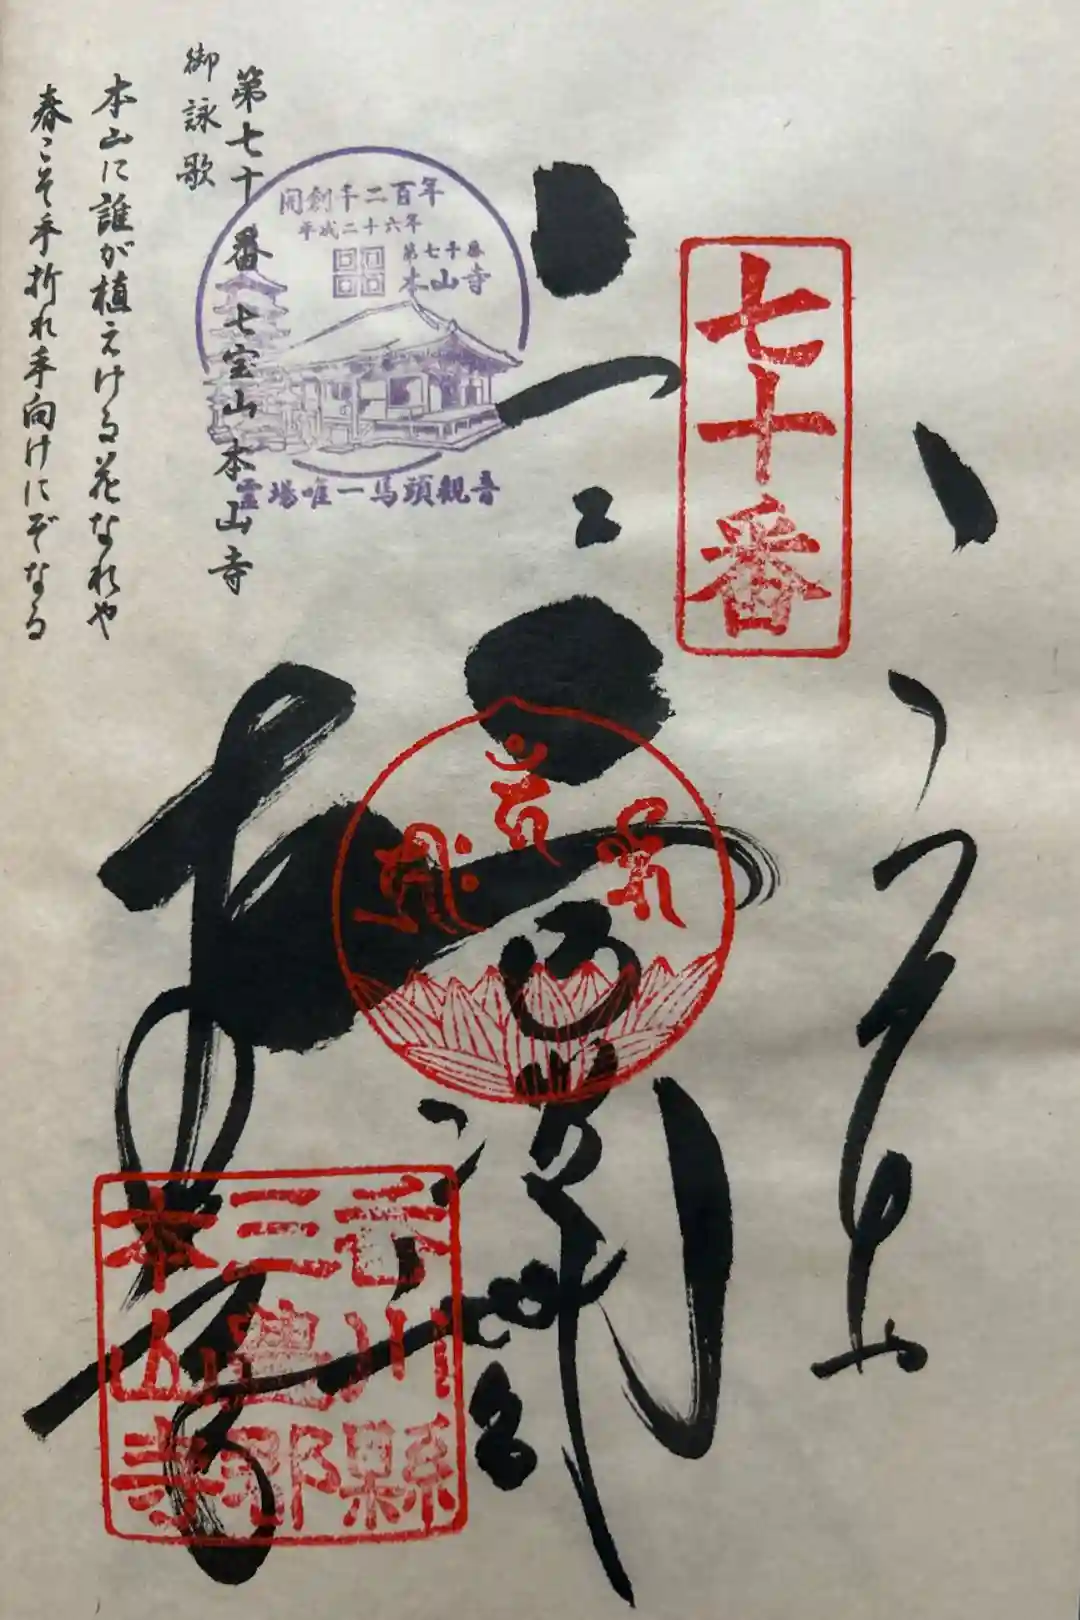 七十番
奉
本山寺
香川縣
三豊郡
本山寺
開創千二百年
平成二十六年
第七十番
本山寺
霊場唯一馬頭観音
第七十番 七宝山 本山寺
御詠歌
本山に誰が植えける花なれや
春こそ手折れ手向けにぞなる